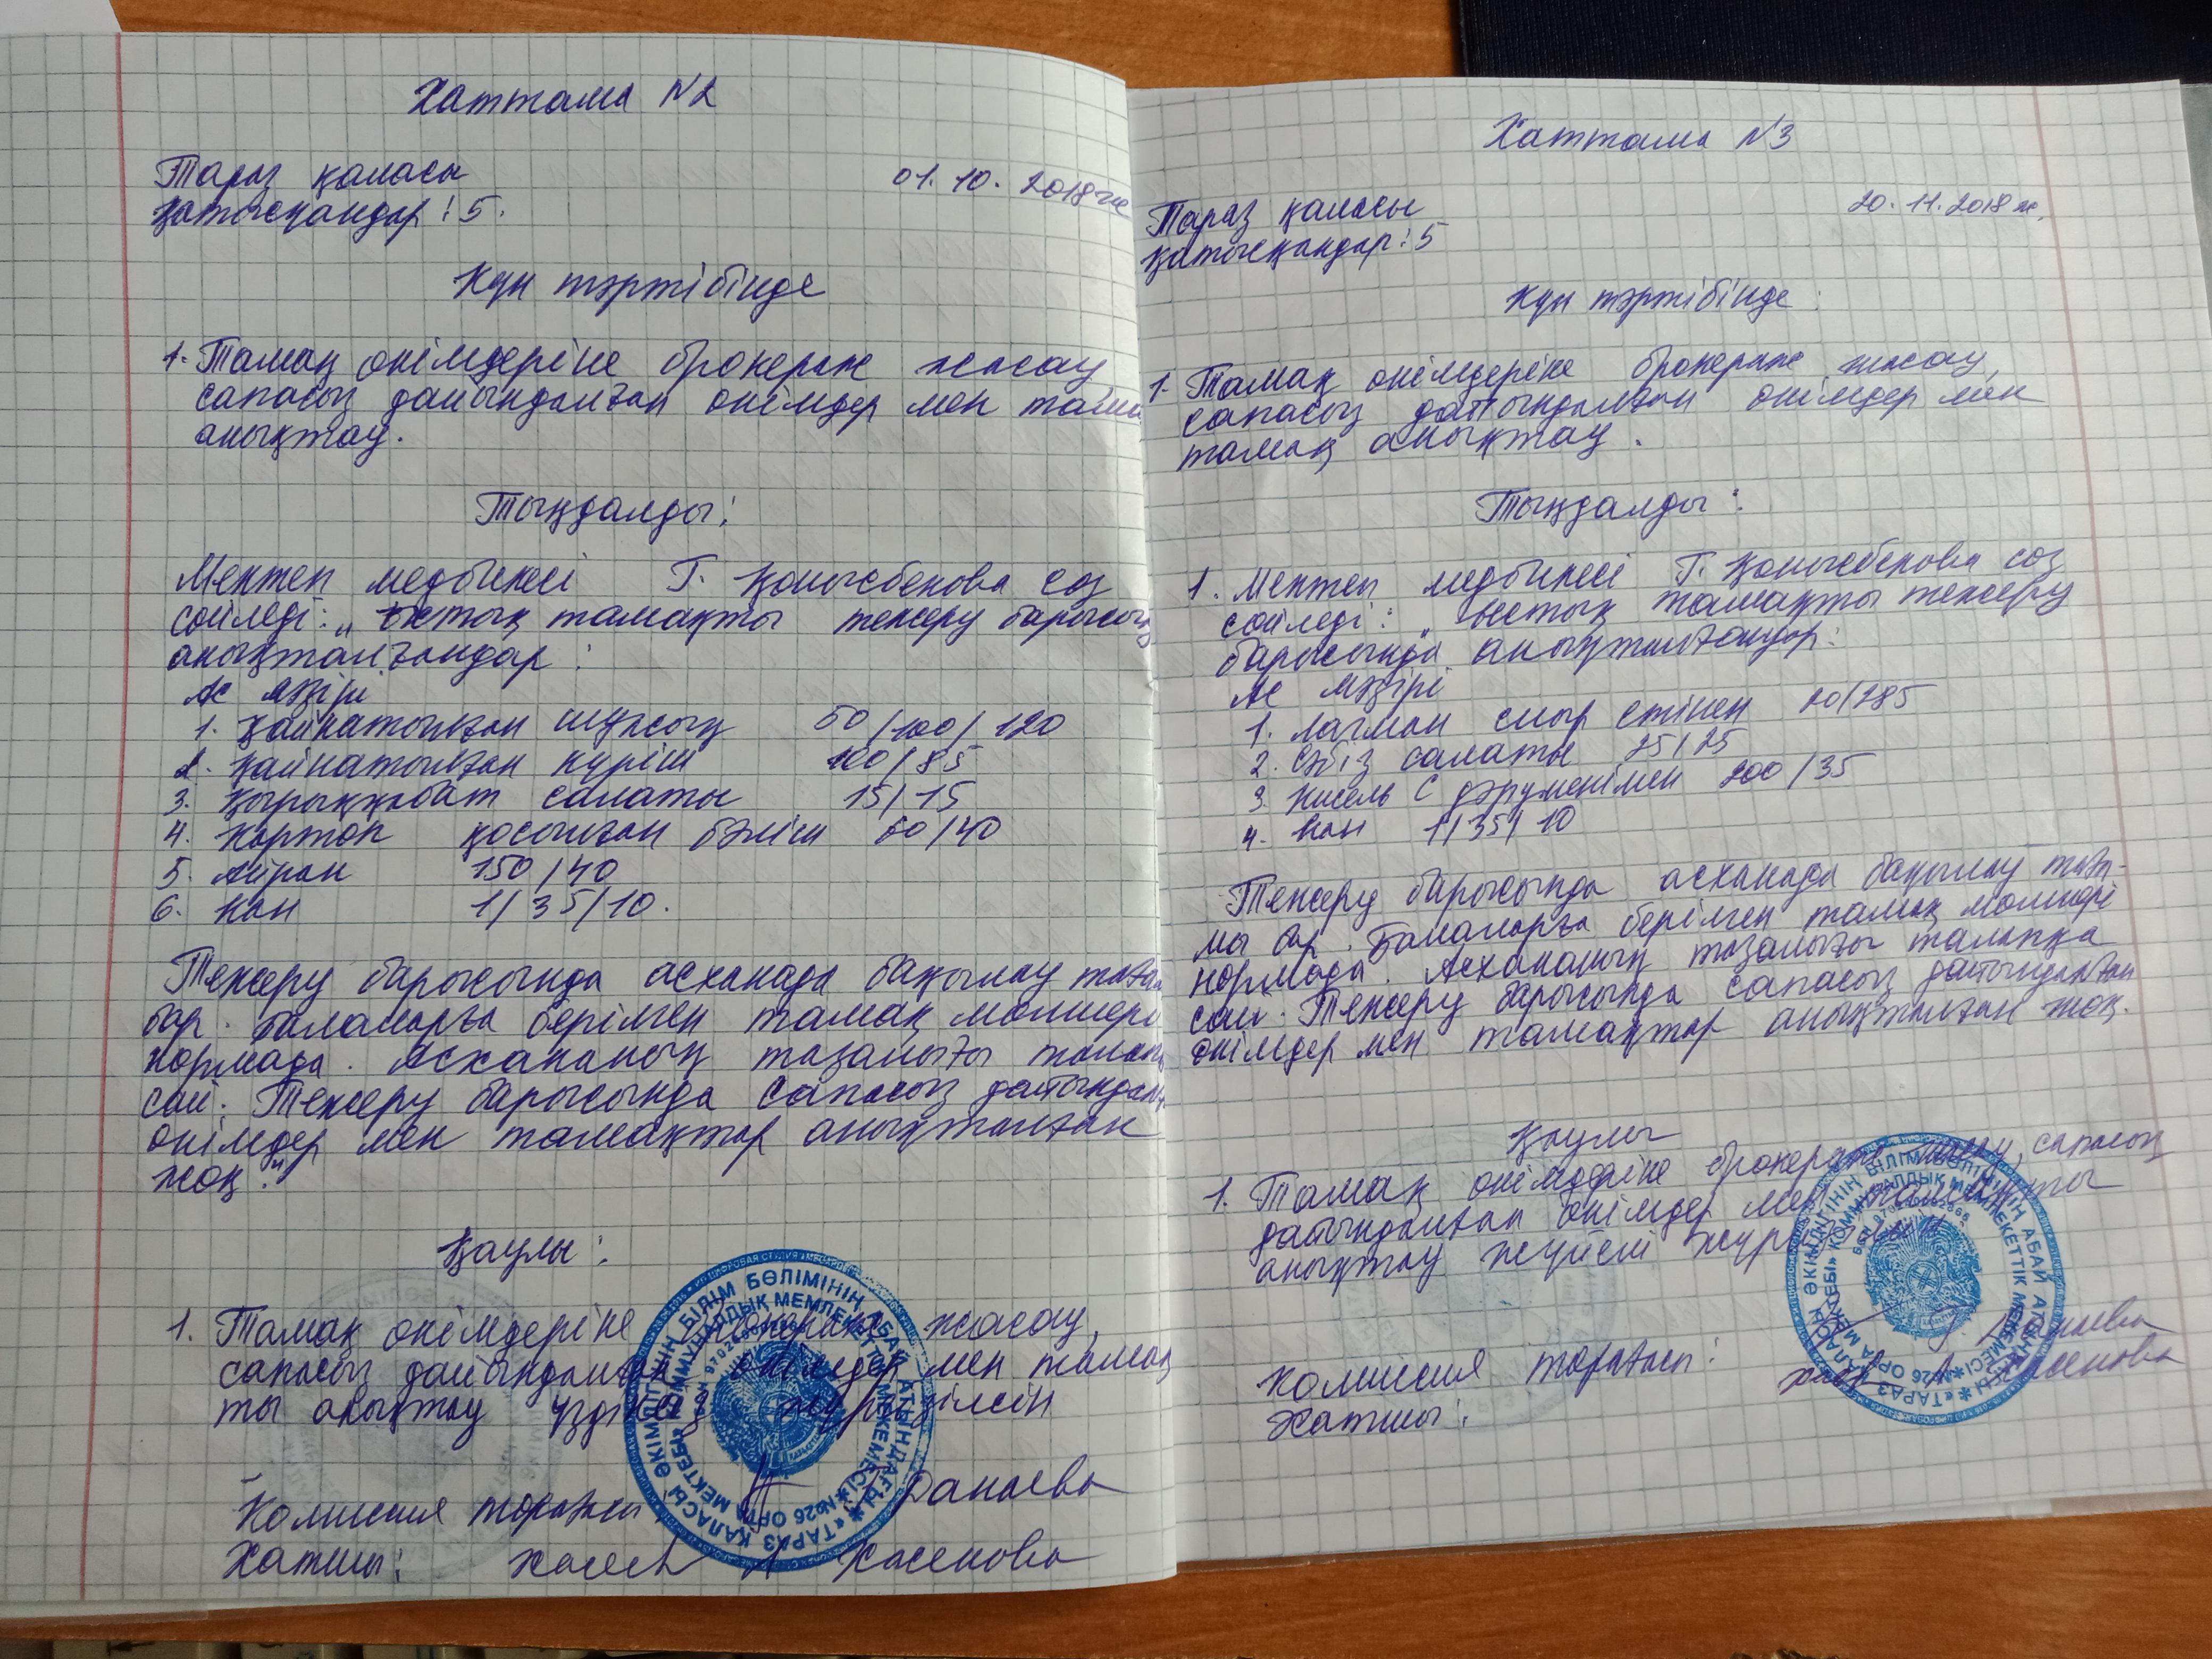 Хаттама №2
Тараз қаласы
01.10.2018ж
Қатысқандар: 5.
Күн тәртібінде
1. Тамақ өнімдеріне брокераж жасау
сапасыз дайындалған өнімдер мен тама
анықтау.
Тыңдалды:
Мектеп медбикесі Г. Қонысбекова сөз
сөйледі: „ ыстық тамақты тексеру барысынд
анықталғандар:
Ас мәзірі
1. Қайнатылған шұжық 50/100/120
2. Қайнатылған күріш 100/85
3. Қырыққабат салаты 15/15
4. Картоп қосылған бәліш 60/40
5. Айран 150/40
6. Нан 1/35/10.
Тексеру барысында асханада бақылау тағам
бар. Балаларға берілген тамақ мөлшері
нормада. Асхананың тазалығы талапқ
сай. Тексеру барысында сапасыз дайындал
өнімдер мен тамақтар анықталған
жоқ."
Қаулы:
1. Тамақ өнімдеріне брокераж жасау,
сапасыз дайындалған өнімдер мен тамақ
ты анықтау үздіксіз жүргізілсін
Комиссия төрағасы Данаева
Хатшы: Хасенова
Хаттама №3
Тараз қаласы
20.11.2018ж.
Қатысқандар: 5
Күн тәртібінде:
1. Тамақ өнімдеріне брокераж жасау,
сапасыз дайындалған өнімдер мен
тамақ анықтау.
Тыңдалды:
1. Мектеп медбикесі Г. Қонысбекова сөз
сөйледі: „ ыстық тамақты тексеру
барысында анықталғандар:
Ас мәзірі
1. Лагман сиыр етінен 20/285
2. Сәбіз салаты 25/25
3. Кисель С дәруменімен 200/35
4. Нан 1/35/10
Тексеру барысында асханада бақылау таға-
мы бар. Балаларға берілген тамақ мөлшері
нормада. Асхананың тазалығы талапқа
сай. Тексеру барысында сапасыз дайындалған
өнімдер мен тамақтар анықталған жоқ.
Қаулы
1. Тамақ өнімдеріне брокераж жасау, сапасыз
дайындалған өнімдер мен тамақты
анықтау жүйелі
Комиссия төрағасы: Данаева
Хатшы: Хасенова